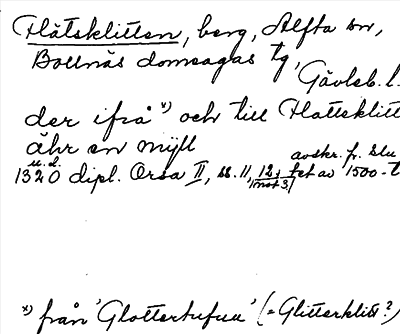 Flätsklitten, berg, Alfta sn,
Bollnäs domsagas tg,
Gävleb. l.
der ifrå x) och till Flattsklitt
ähr en mÿll
u. d. avskr. fr. slu
1320 dipl. Orsa II, s. 11, 12, fet av 1500-t
mot 31
x) från 'Glottertufuu' (= Glitterklitt?)